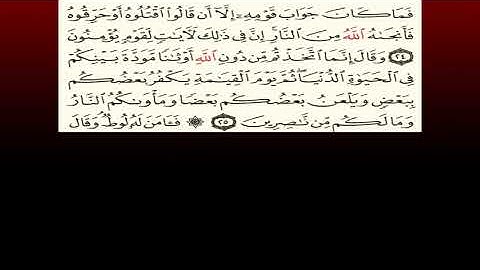 فَمَا كَانَ جَوَابَ قَوْمِهِۦٓ إِلَّآ أَن قَالُوا۟ ٱقْتُلُوهُ أَوْ حَرِّقُوهُ
فَأَنجَىٰهُ ٱللَّهُ مِنَ ٱلنَّارِ إِنَّ فِى ذَٰلِكَ لَـَٔايَٰتٍ لِّقَوْمٍ يُؤْمِنُونَ
٢٤ وَقَالَ إِنَّمَا ٱتَّخَذْتُم مِّن دُونِ ٱللَّهِ أَوْثَٰنًا مَّوَدَّةَ بَيْنِكُمْ
فِى ٱلْحَيَوٰةِ ٱلدُّنْيَا ثُمَّ يَوْمَ ٱلْقِيَٰمَةِ يَكْفُرُ بَعْضُكُم
بِبَعْضٍ وَيَلْعَنُ بَعْضُكُم بَعْضًا وَمَأْوَىٰكُمُ ٱلنَّارُ
وَمَا لَكُم مِّن نَّٰصِرِينَ ٢٥ ۞ فَـَٔامَنَ لَهُۥ لُوطٌ وَقَالَ